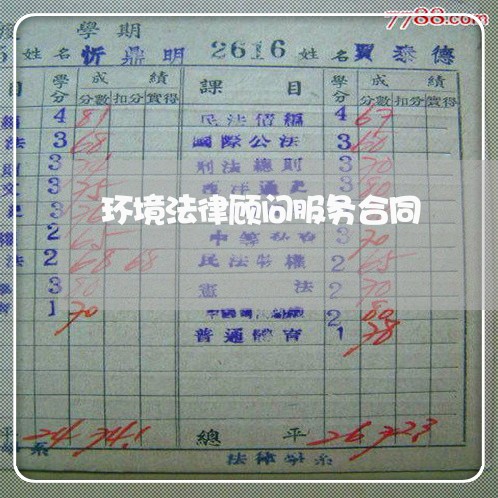 7788.com
學期
姓名 忻鼎明 2616 姓名 賈泰德
目 學分 成績 課目 學分 成績
分數 扣分 實得 分數 扣分 實得
4 81 民法債編 4 67
法 3 68 國際公法 3 60
3 刑法總則 3 70
文 3 75 西洋通史 3 80
環境法律顾问服务合同
2 65 3 70
法 2 68 68 民法物權 2 65
3 80 憲法 2 70
1 70 2 80
普通體育 1 78
平 24 74.1 總平 26 72.3
系 法律學系